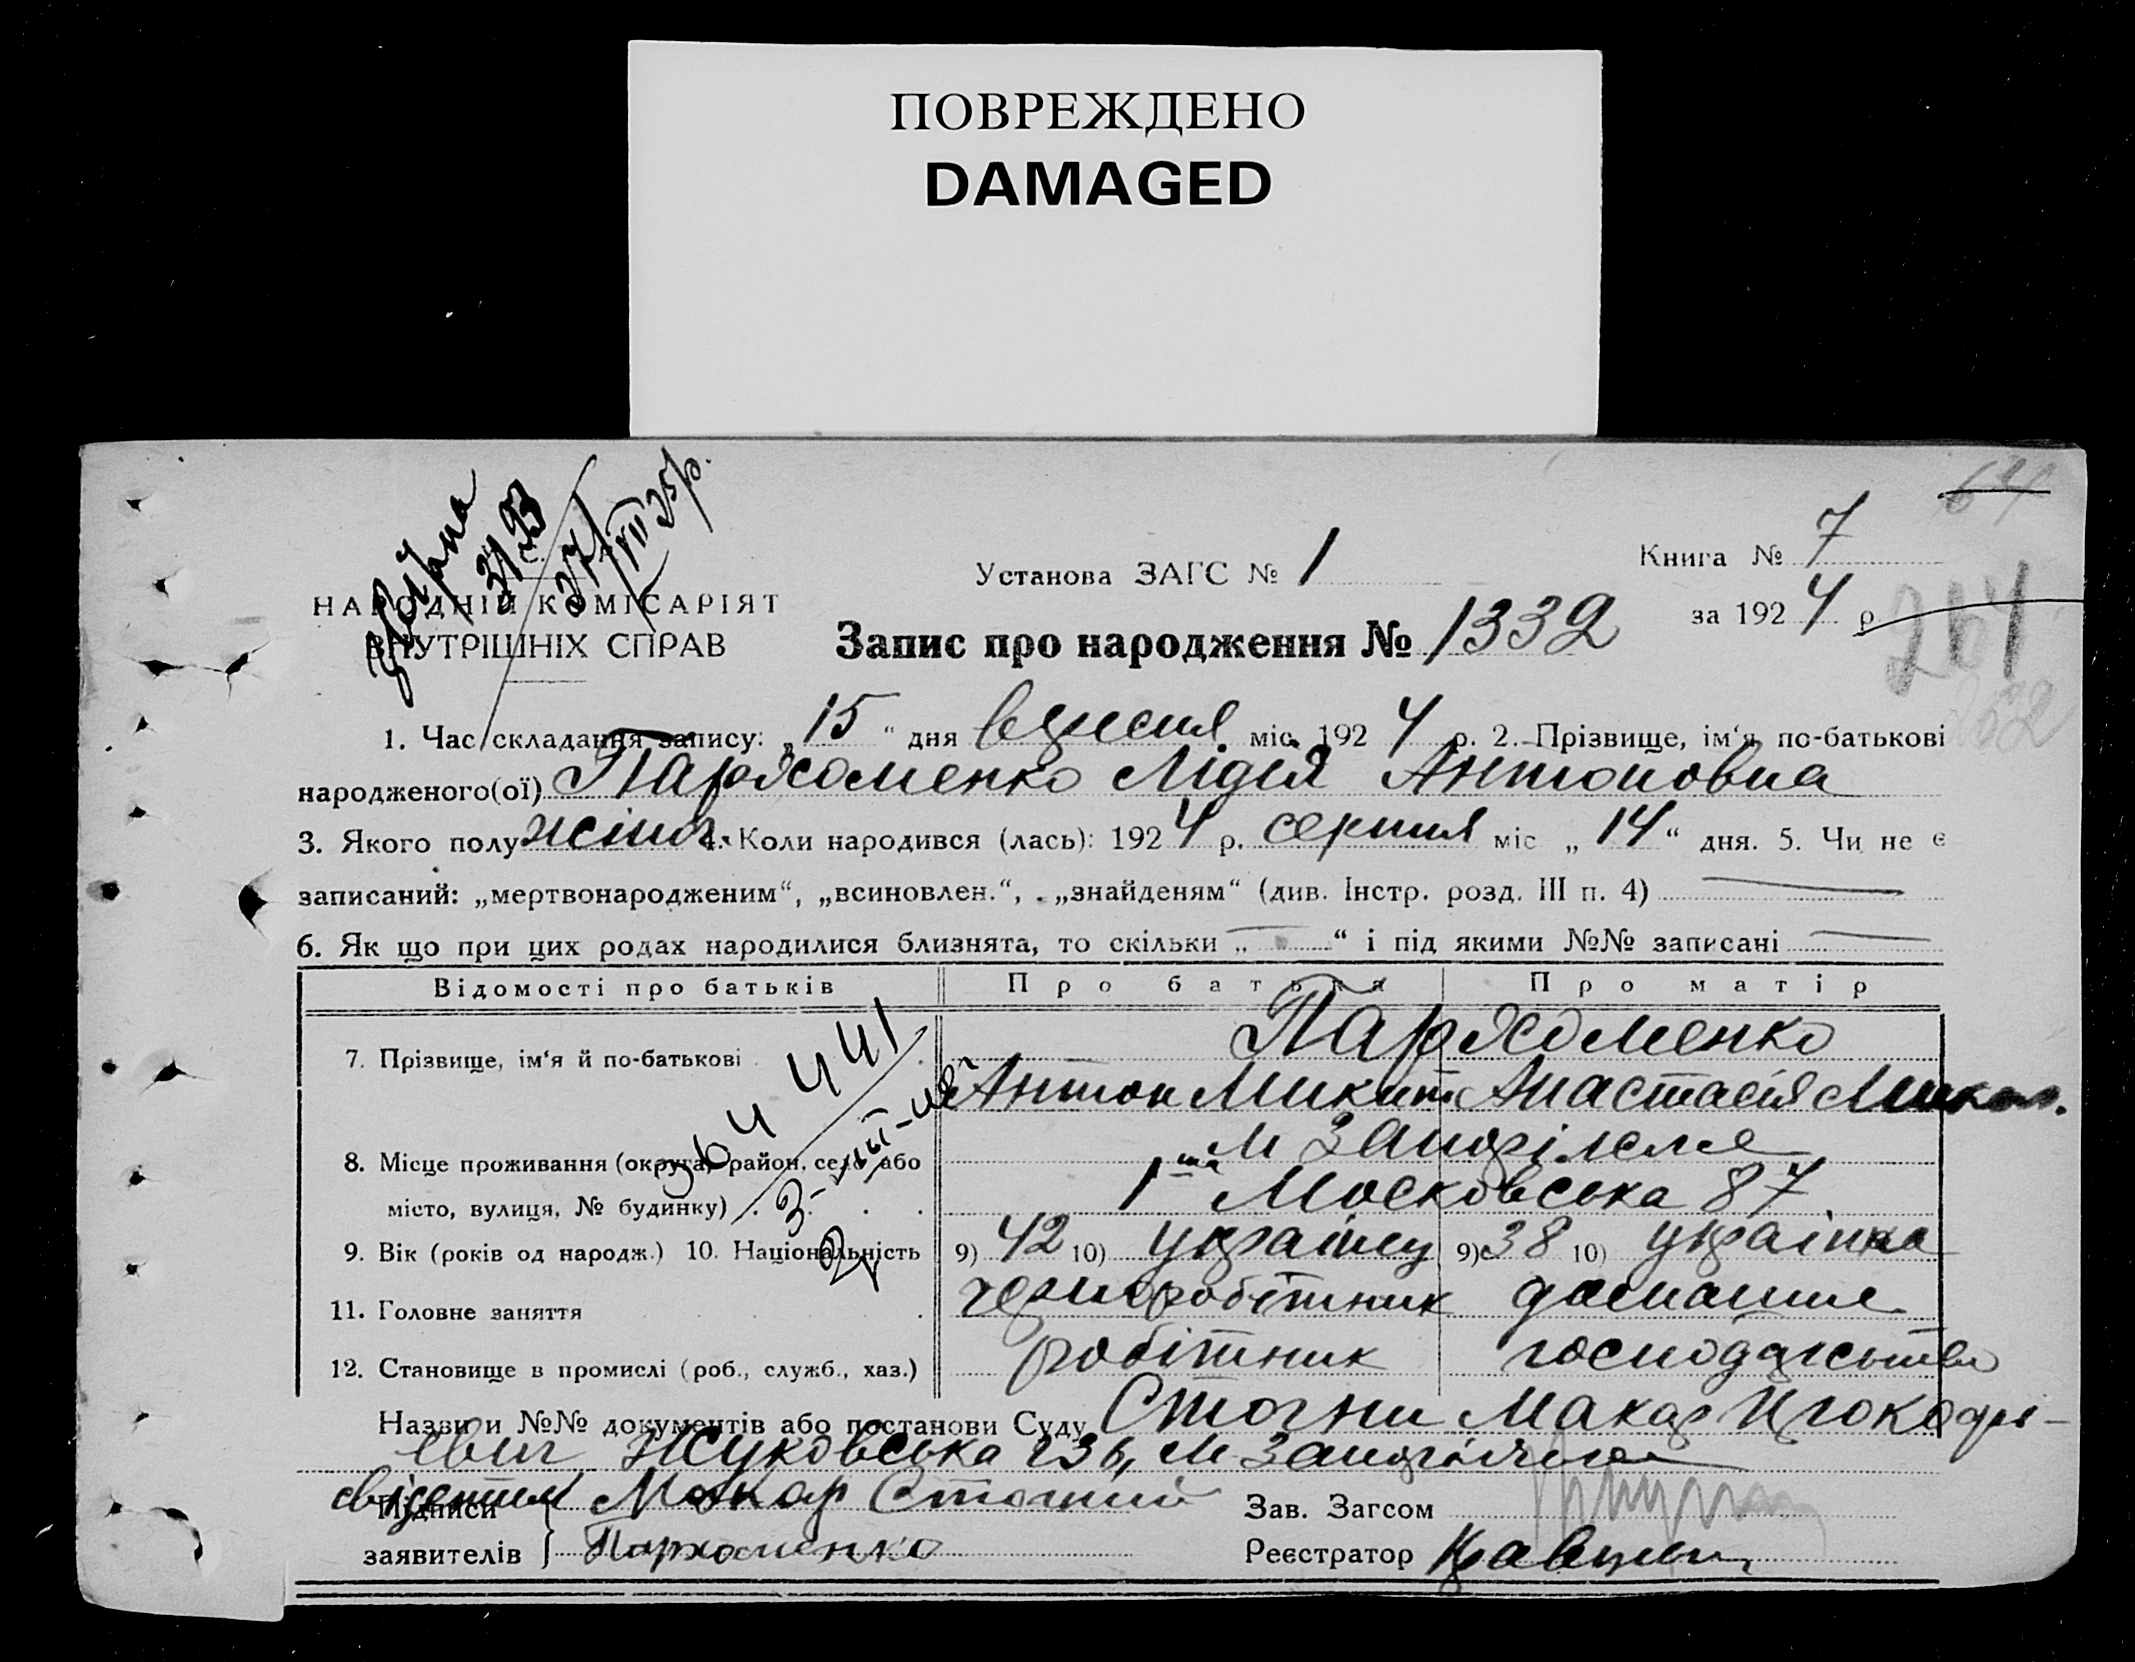 ПОВРЕЖДЕНО
DAMAGED
64
Книга № 7
Установа ЗАГС № 1
за 1924 р
264
232
НАРОДНІЙ КОМІСАРІЯТ
ВНУТРІШНІХ СПРАВ
Запис про народження № 1332
1. Час складання запису: „15“ дня вересня міс. 1924 р. 2. Прізвище, ім‘я по-батькові
народженого(ої) Пархоменко Лідія Антоновна
3. Якого полу жіноч. 4. Коли народився (лась): 1924 р. серпня міс „14“ дня. 5. Чи не є
записаний: „мертвонародженим“, „всиновлен.“, „знайденям“ (див. Інстр. розд. III п. 4)
6. Як що при цих родах народилися близнята, то скільки „ “ і під якими №№ записані
Відомості про батьків Про батька Про матір
7. Прізвище, ім‘я й по-батькові Пархоменко
Антон Микит. Анастасія Микол.
8. Місце проживання (округа, район, село або м Запоріжжя
місто, вулиця, № будинку) 1ша Московська 87
9. Вік (років од народж.) 10. Національність 9) 42 10) українец 9) 38 10) українка
11. Головне заняття чорноробітник домашнє
12. Становище в промислі (роб., служб., хаз.) робітник господарство
Назви и №№ документів або постанови Суду Стогни Макар Прокофі-
евич Жуковська 236, м Запоріжжя
свідетил Макар Стогний
Підписи
заявителів Пархоменко
Зав. Загсом
Реєстратор Кравцен